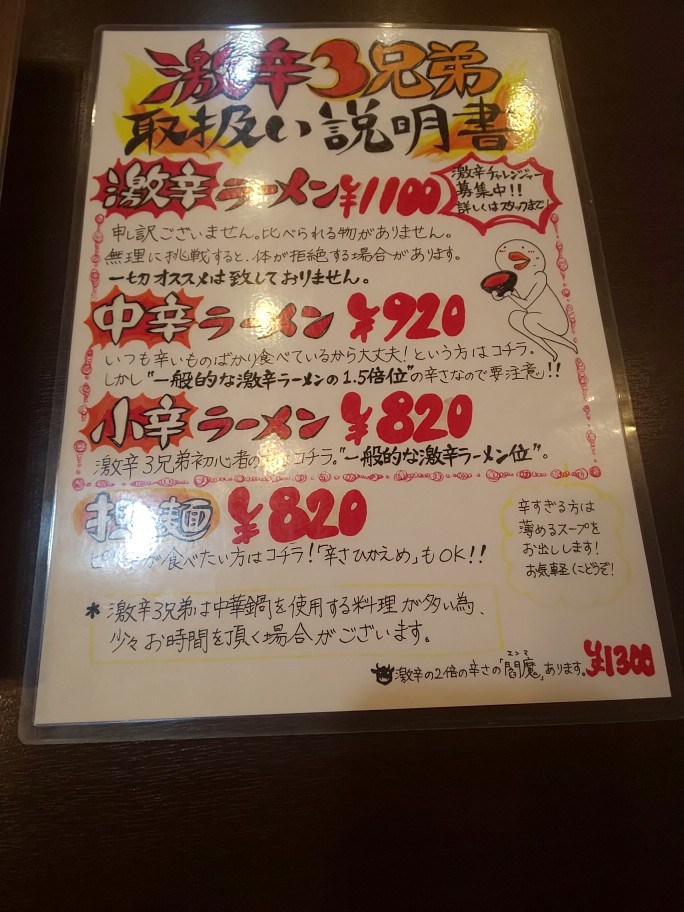 激辛3兄弟
取扱い説明書
激辛ラーメン ¥1100
激辛チャレンジャー
募集中!!
詳しくはスタッフまで
申し訳ございません。比べられる物がありません。
無理に挑戦すると、体が拒絶する場合があります。
一切オススメは致しておりません。
中辛ラーメン ¥920
いつも辛いものばかり食べているから大丈夫!という方はコチラ。
しかし"一般的な激辛ラーメンの1.5倍位"の辛さなので要注意!!
小辛ラーメン ¥820
激辛3兄弟初心者の コチラ。"一般的な激辛ラーメン位"。
担麺 ¥820
が食べたい方はコチラ!「辛さひかえめ」もOK!!
辛すぎる方は
薄めるスープを
お出しします!
お気軽にどうぞ!
*激辛3兄弟は中華鍋を使用する料理が多い為、
少々お時間を頂く場合がございます。
激辛の2倍の辛さの「閻魔」あります。¥1300